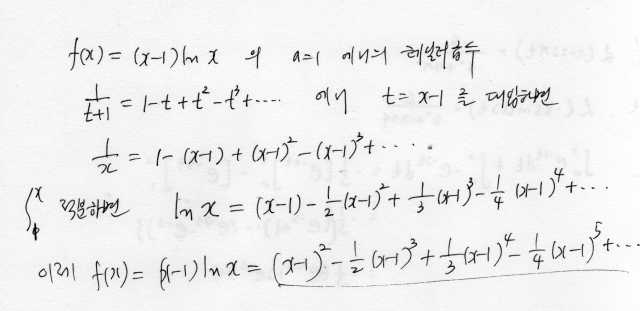 f(x) = (x-1) ln x 의 a=1 에서의 테일러급수
1/(t+1) = 1-t+t²-t³+···· 에서 t= x-1 을 대입하면
1/x = 1-(x-1)+(x-1)²-(x-1)³+····
∫₁ˣ 적분하면 ln x = (x-1)-1/2(x-1)²+1/3(x-1)³-1/4(x-1)⁴+···
이제 f(x) = (x-1) ln x = (x-1)²-1/2(x-1)³+1/3(x-1)⁴-1/4(x-1)⁵+···